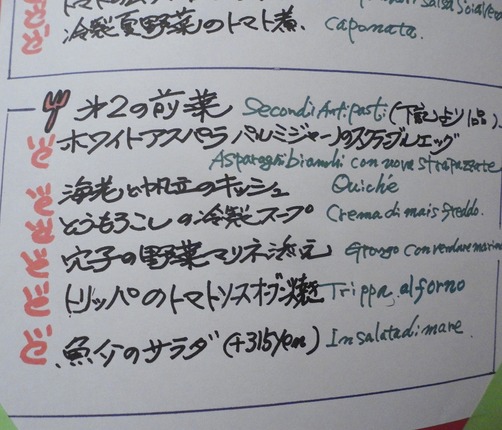 冷製夏野菜のトマト煮. Caponata.
オ2の前菜 Secondi Antipasti (下記より1品)
ホワイトアスパラ パルミジャーノのスクランブルエッグ
Asparagi bianchi con nova strapazzate
海老と帆立のキッシュ Quiché
とうもろこしの冷製スープ Crema di mais freddo.
穴子の野菜マリネ添え Grongo con verdure marina
トリッパのトマトソースオーブン焼き Trippa al forno
魚介のサラダ (+315yen) Insalata di mare.